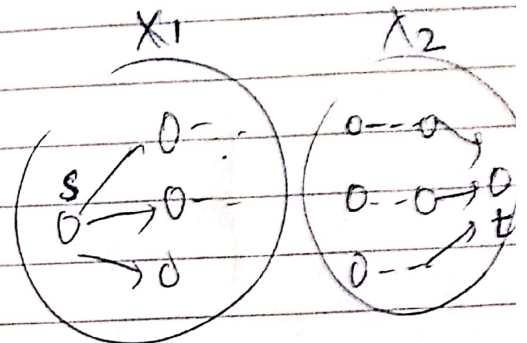 X1 X2
s
t